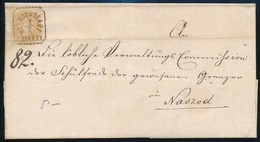 An
82. Die löbliche Verwaltungs Commission
der Schulfonde der gewesenen Grenzer
in
Naszod